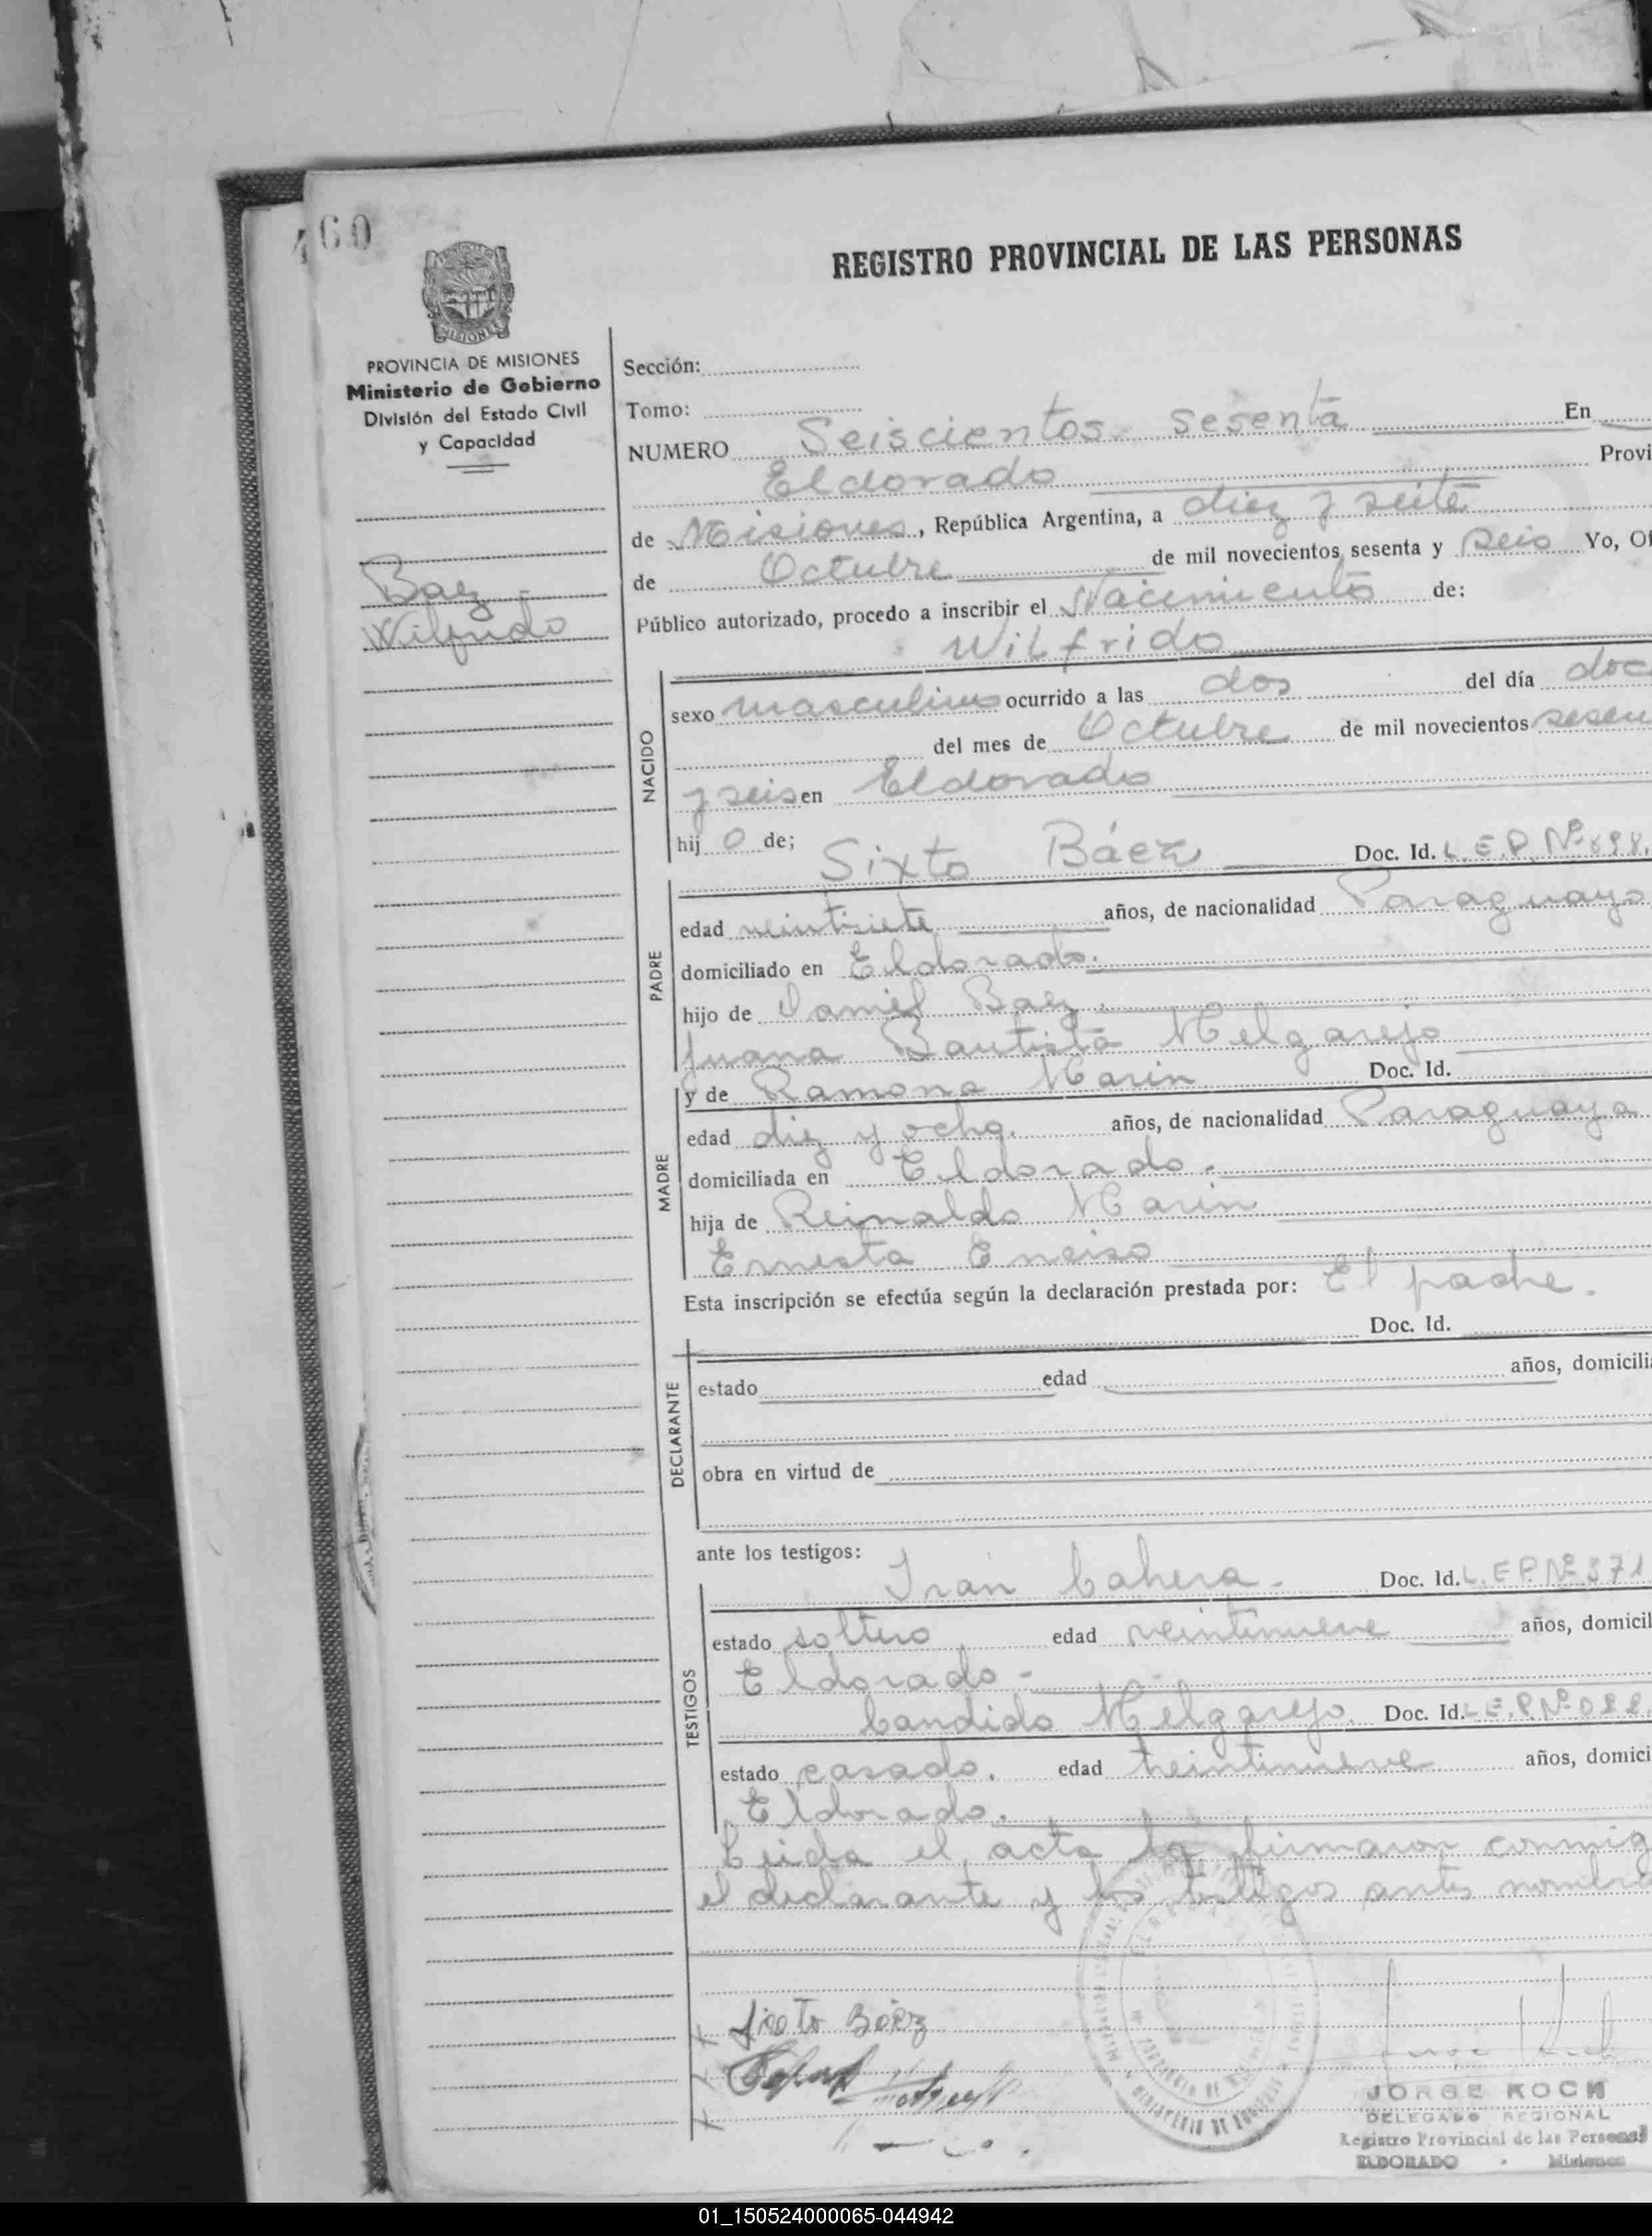 460
REGISTRO PROVINCIAL DE LAS PERSONAS
MISIONES
PROVINCIA DE MISIONES
Ministerio de Gobierno
División del Estado Civil
y Capacidad
Baez -
Wilfrido
Sección:
Tomo:
NUMERO Seiscientos sesenta En
Eldorado Provi
de Misiones, República Argentina, a diez y seite
de Octubre de mil novecientos sesenta y seis Yo, Of
Público autorizado, procedo a inscribir el Nacimiento de:
Wilfrido
NACIDO
sexo masculino ocurrido a las dos del día doc
del mes de Octubre de mil novecientos sesen
y seis en Eldorado
hij o de; Sixto Báez Doc. Id. L.E.P. Nº 698.
PADRE
edad veintisiete años, de nacionalidad Paraguayo
domiciliado en Eldorado.
hijo de Daniel Baez
Juana Bautista Melgarejo
y de Ramona Marin Doc. Id.
MADRE
edad diez y ocho. años, de nacionalidad Paraguaya
domiciliada en Eldorado.
hija de Reinaldo Marin
Ernesta Enciso
Esta inscripción se efectúa según la declaración prestada por: El padre.
Doc. Id.
DECLARANTE
estado edad años, domicili
obra en virtud de
ante los testigos:
Iran Cabera - Doc. Id. L.E.P. Nº 371
TESTIGOS
estado soltero edad veintinueve años, domicil
Eldorado -
Candido Melgarejo. Doc. Id. L.E.P. Nº 022.
estado casado. edad treintinueve años, domici
Eldorado.
Leida el acta la firmaron conmig
el declarante y los testigos antes nombra
Sixto Báez
JORGE KOCH
DELEGADO REGIONAL
Registro Provincial de las Personas
ELDORADO - Misiones
01_150524000065-044942